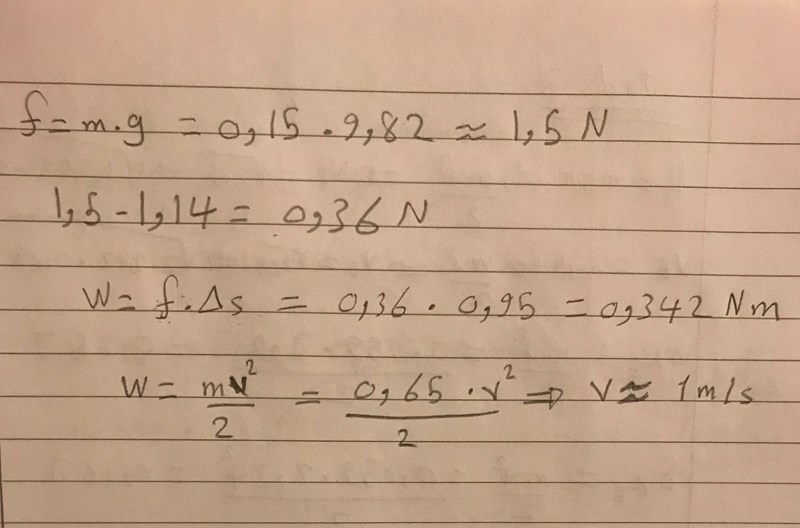 f = m·g = 0,15 · 9,82 ≈ 1,5 N
1,5 - 1,14 = 0,36 N
W = f·Δs = 0,36 · 0,95 = 0,342 Nm
W = mv²/2 = 0,65 · v²/2 ⇒ v ≈ 1 m/s